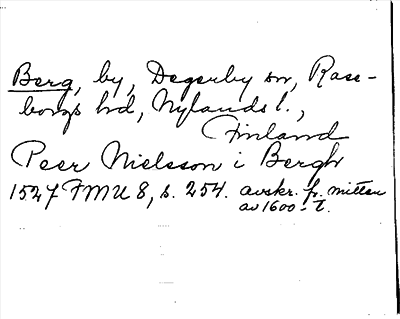 Berg, by, Degerby sn, Rase-
borgs hd, Nylands l.,
Finland
Peer Nielsson i Bergh
1527 FMU 8, s. 254. avskr. fr. mitten
av 1600-t.